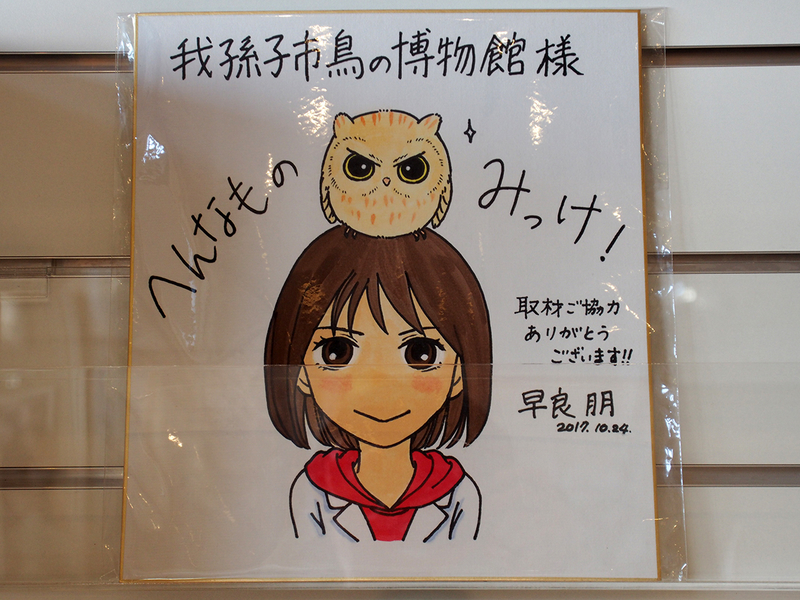 我孫子市鳥の博物館様
へんなもの
みっけ!
取材ご協力
ありがとう
ございます!!
早良朋
2017.10.24.